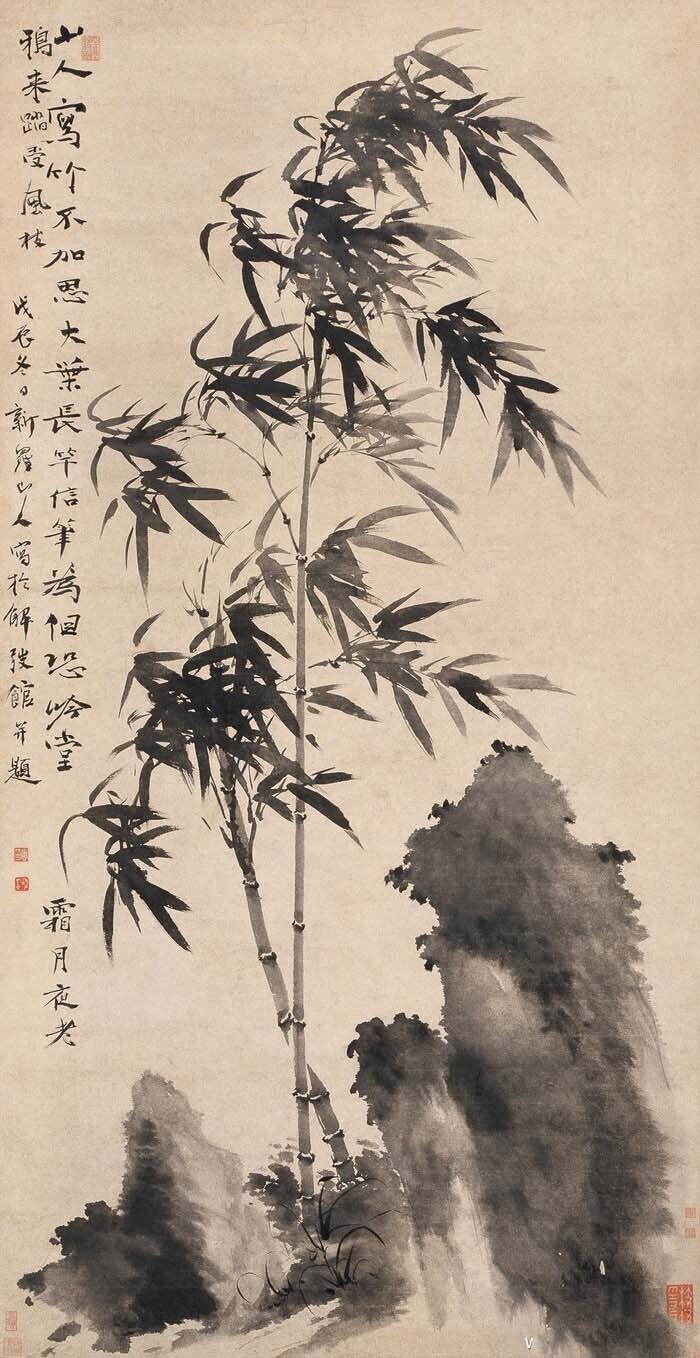 山人寫竹不加思大葉長竿信筆為但恐吟堂
霜月夜老
鴉来踏受風枝
戊辰冬日新羅山人寫於解弢館并題